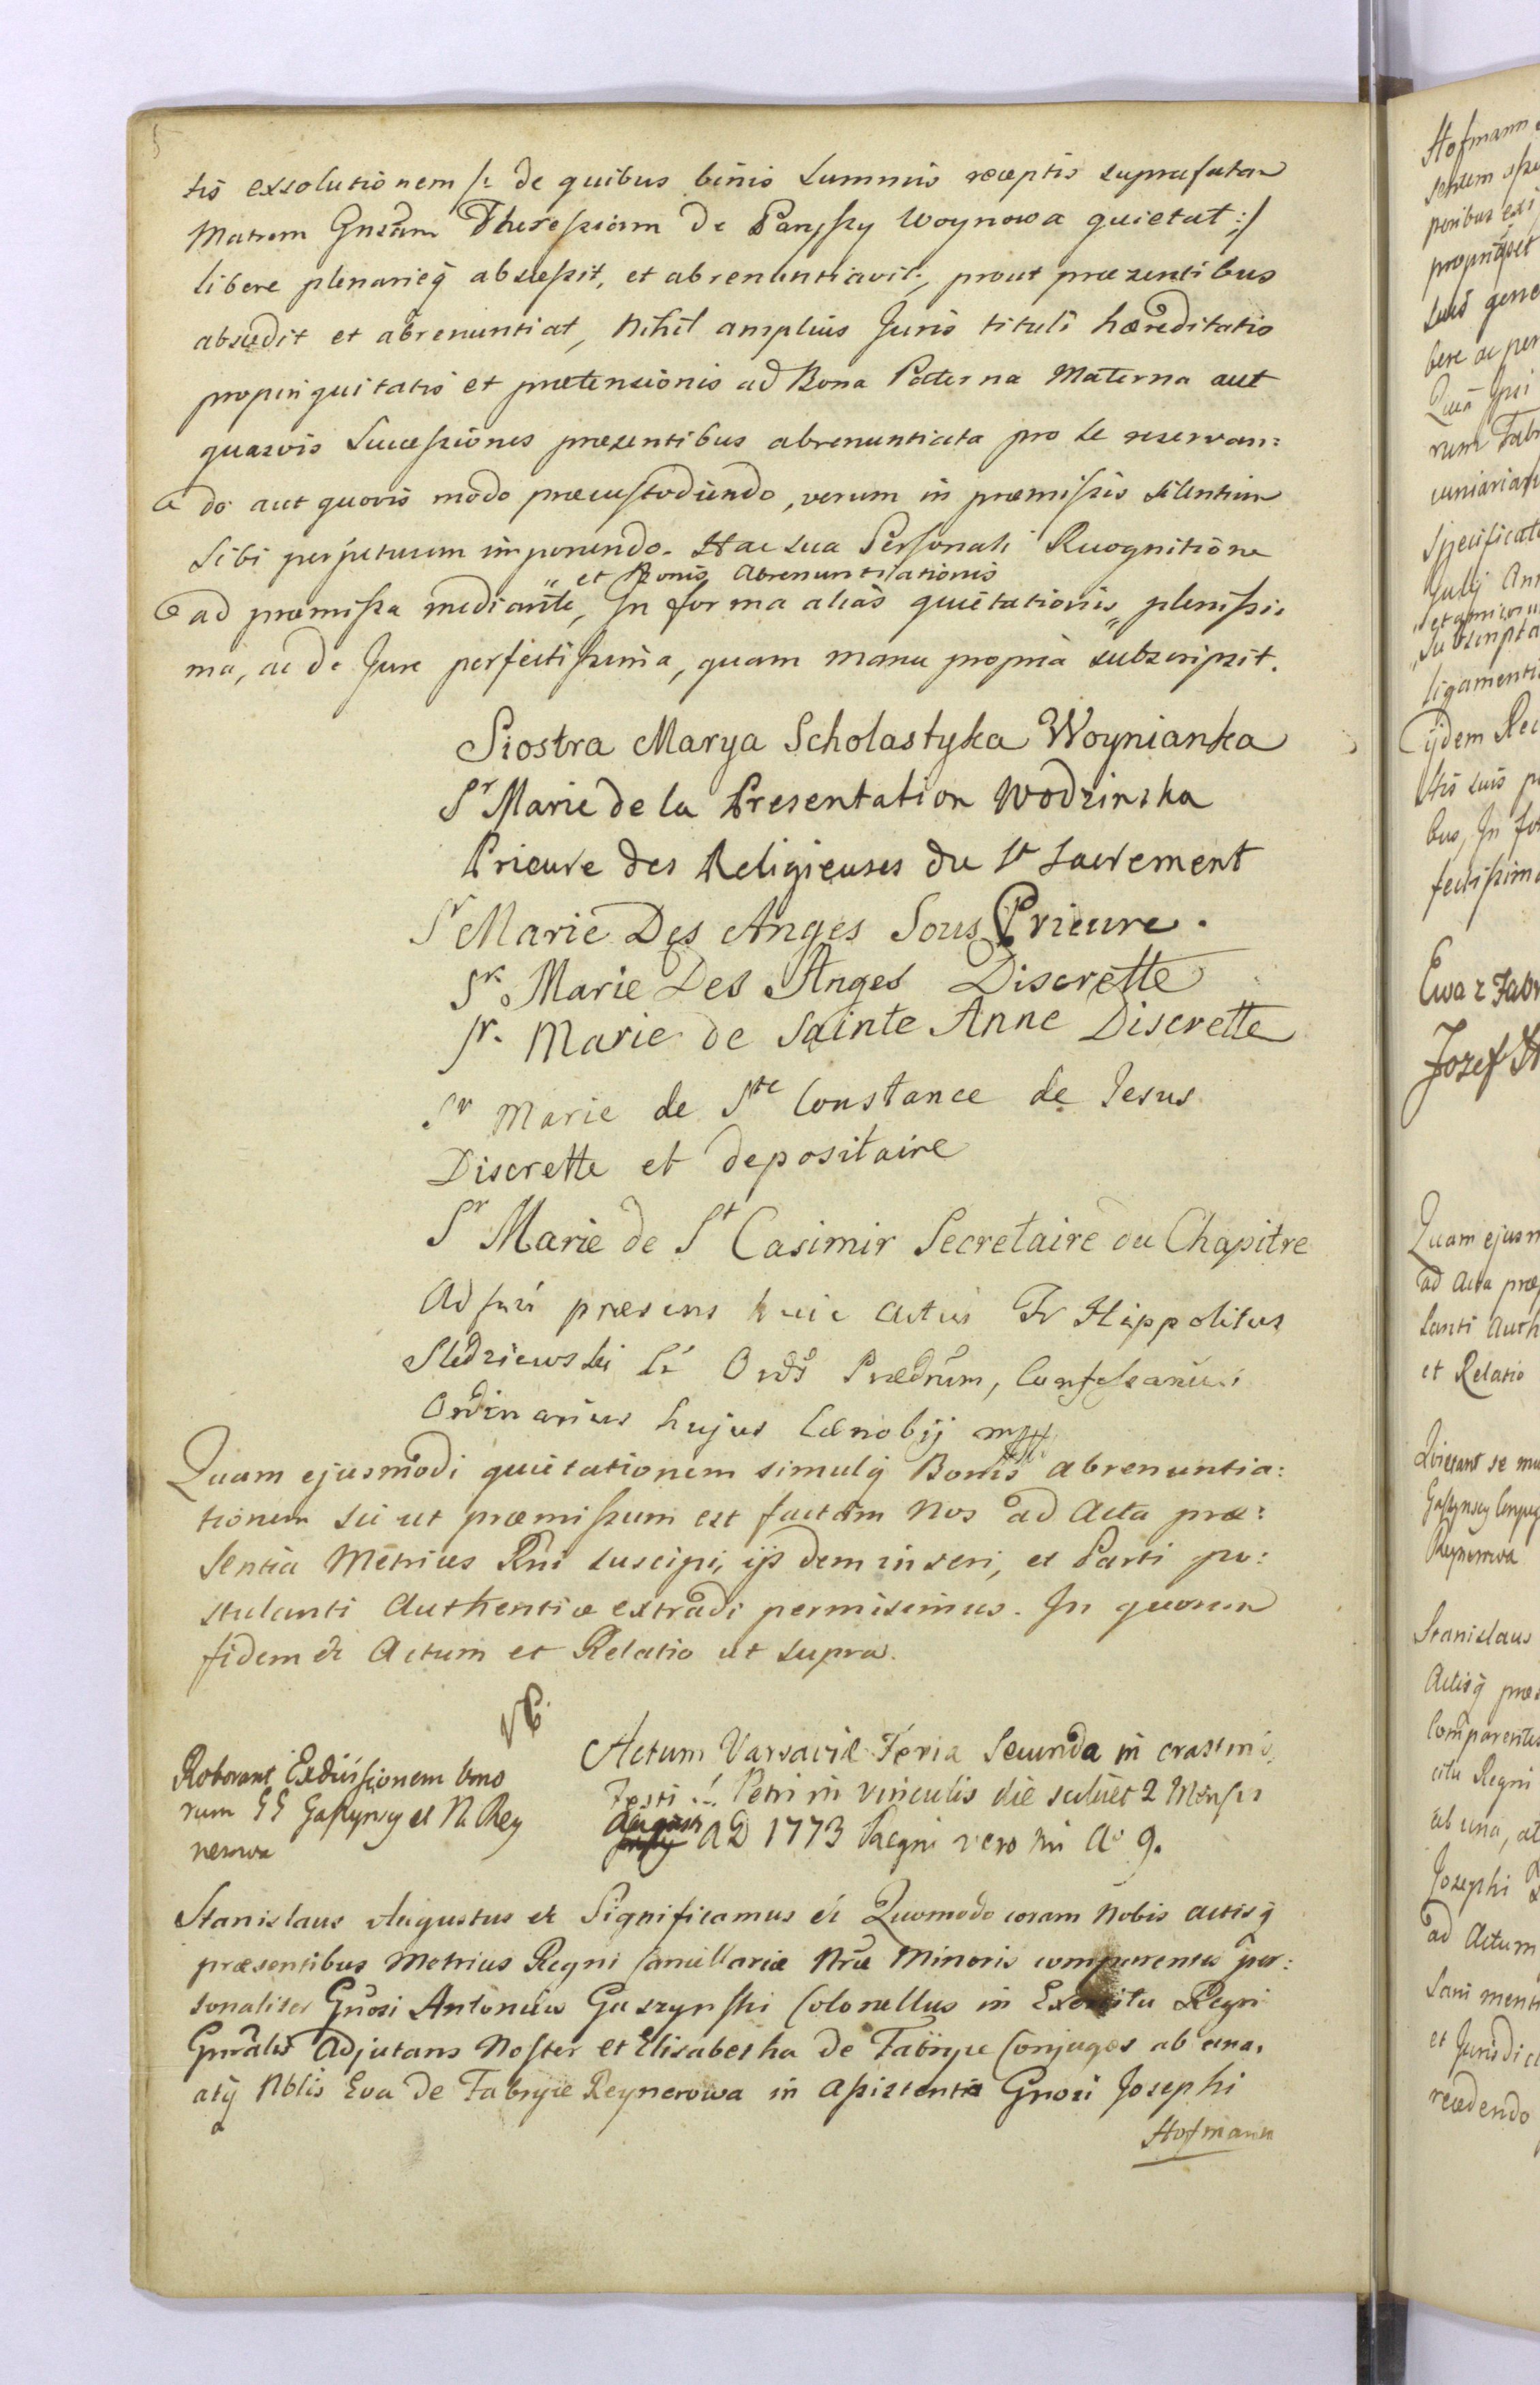 5
tis exsolutionem /: de quibus binis Summis receptis suprafatam
Matrem Gnsam Theressiam de Paryssy Woynowa quietat :/
libere plenarieq abscessit, et abrenuntiavit, prout præsentibus
abscedit et abrenuntiat, Nihil amplius Juris tituli hæreditatis
propinquitatis et prætensionis ad Bona Paterna Materna aut
quasvis Successiones præsentibus abrenuntiata pro se reservan:
do aut quovis modo præcustodiendo, verum in præmissis silentium
Sibi perpetuum imponendo. Hac sua Personali Recognitione
" et Bonis Abrenuntiationis
ad præmissa mediante, In forma alias quietationis " plenissi:
ma, ac de Jure perfectissima, quam manu propria subscripsit.
Siostra Marya Scholastyka Woynianka
Sr Marie de la Presentation Wodzinska
Prieure des Religieuses du St Sacrement
Sr Marie Des Anges Sous Prieure.
Sr. Marie Des Anges Discrette
Sr. Marie de Sainte Anne Discrette
Sr Marie de Ste Constance de Jesus
Discrette et depositaire
Sr Marie de St Casimir Secretaire du Chapitre
Adfui præsens huic Actui Fr Hippolitus
Sledziewski Ord Prædrum,
Ordinarius hujus Cœnobij mpp
Quam ejusmodi quietationem simulq Bonis abrenuntia:
tionem sic ut præmissum est factam Nos ad Acta præ:
sentia Metrices Rni suscipi, ijsdem inseri, et Parti po:
stulanti Authentice extradi permisimus. In quorum
fidem &c Actum et Relatio ut supra.
Roborant Exdivisionem bono
rum GG Gaszynscy et N. Rey
nerowa
Actum Varsaviæ Feria Secunda in crastino
Festi S. Petri in vinculis die scilicet 2 Mensis
Augusti AD 1773 Regni vero Nri Ao 9.
Stanislaus Augustus &c Significamus &c Quomodo coram Nobis actisq
præsentibus Metrices Regni Cancellariæ Nræ Minoris comparentes per:
sonaliter Gnosi Antonius Gaszynski Colonellus in Exercitu Regni
Gnralis Adjutans Noster et Elisabetha de Fabryce Conjuges ab una,
atq Nblis Eva de Fabryce Reynerowa in Assistentia Gnosi Josephi
a
Hofmann
Hofmann
Quam Ipsi
Specificat
July
ligamenti
ijdem
Ewa z Fabr
Jozef
Quam ejusm
ad Acta præ
et Relatio
Quietant se mu
Reynerowa
Stanislaus
Actisq præs
Comparentes
ab una, at
Josephi
ad Actum
Sani ment
et Juridic
recedendo